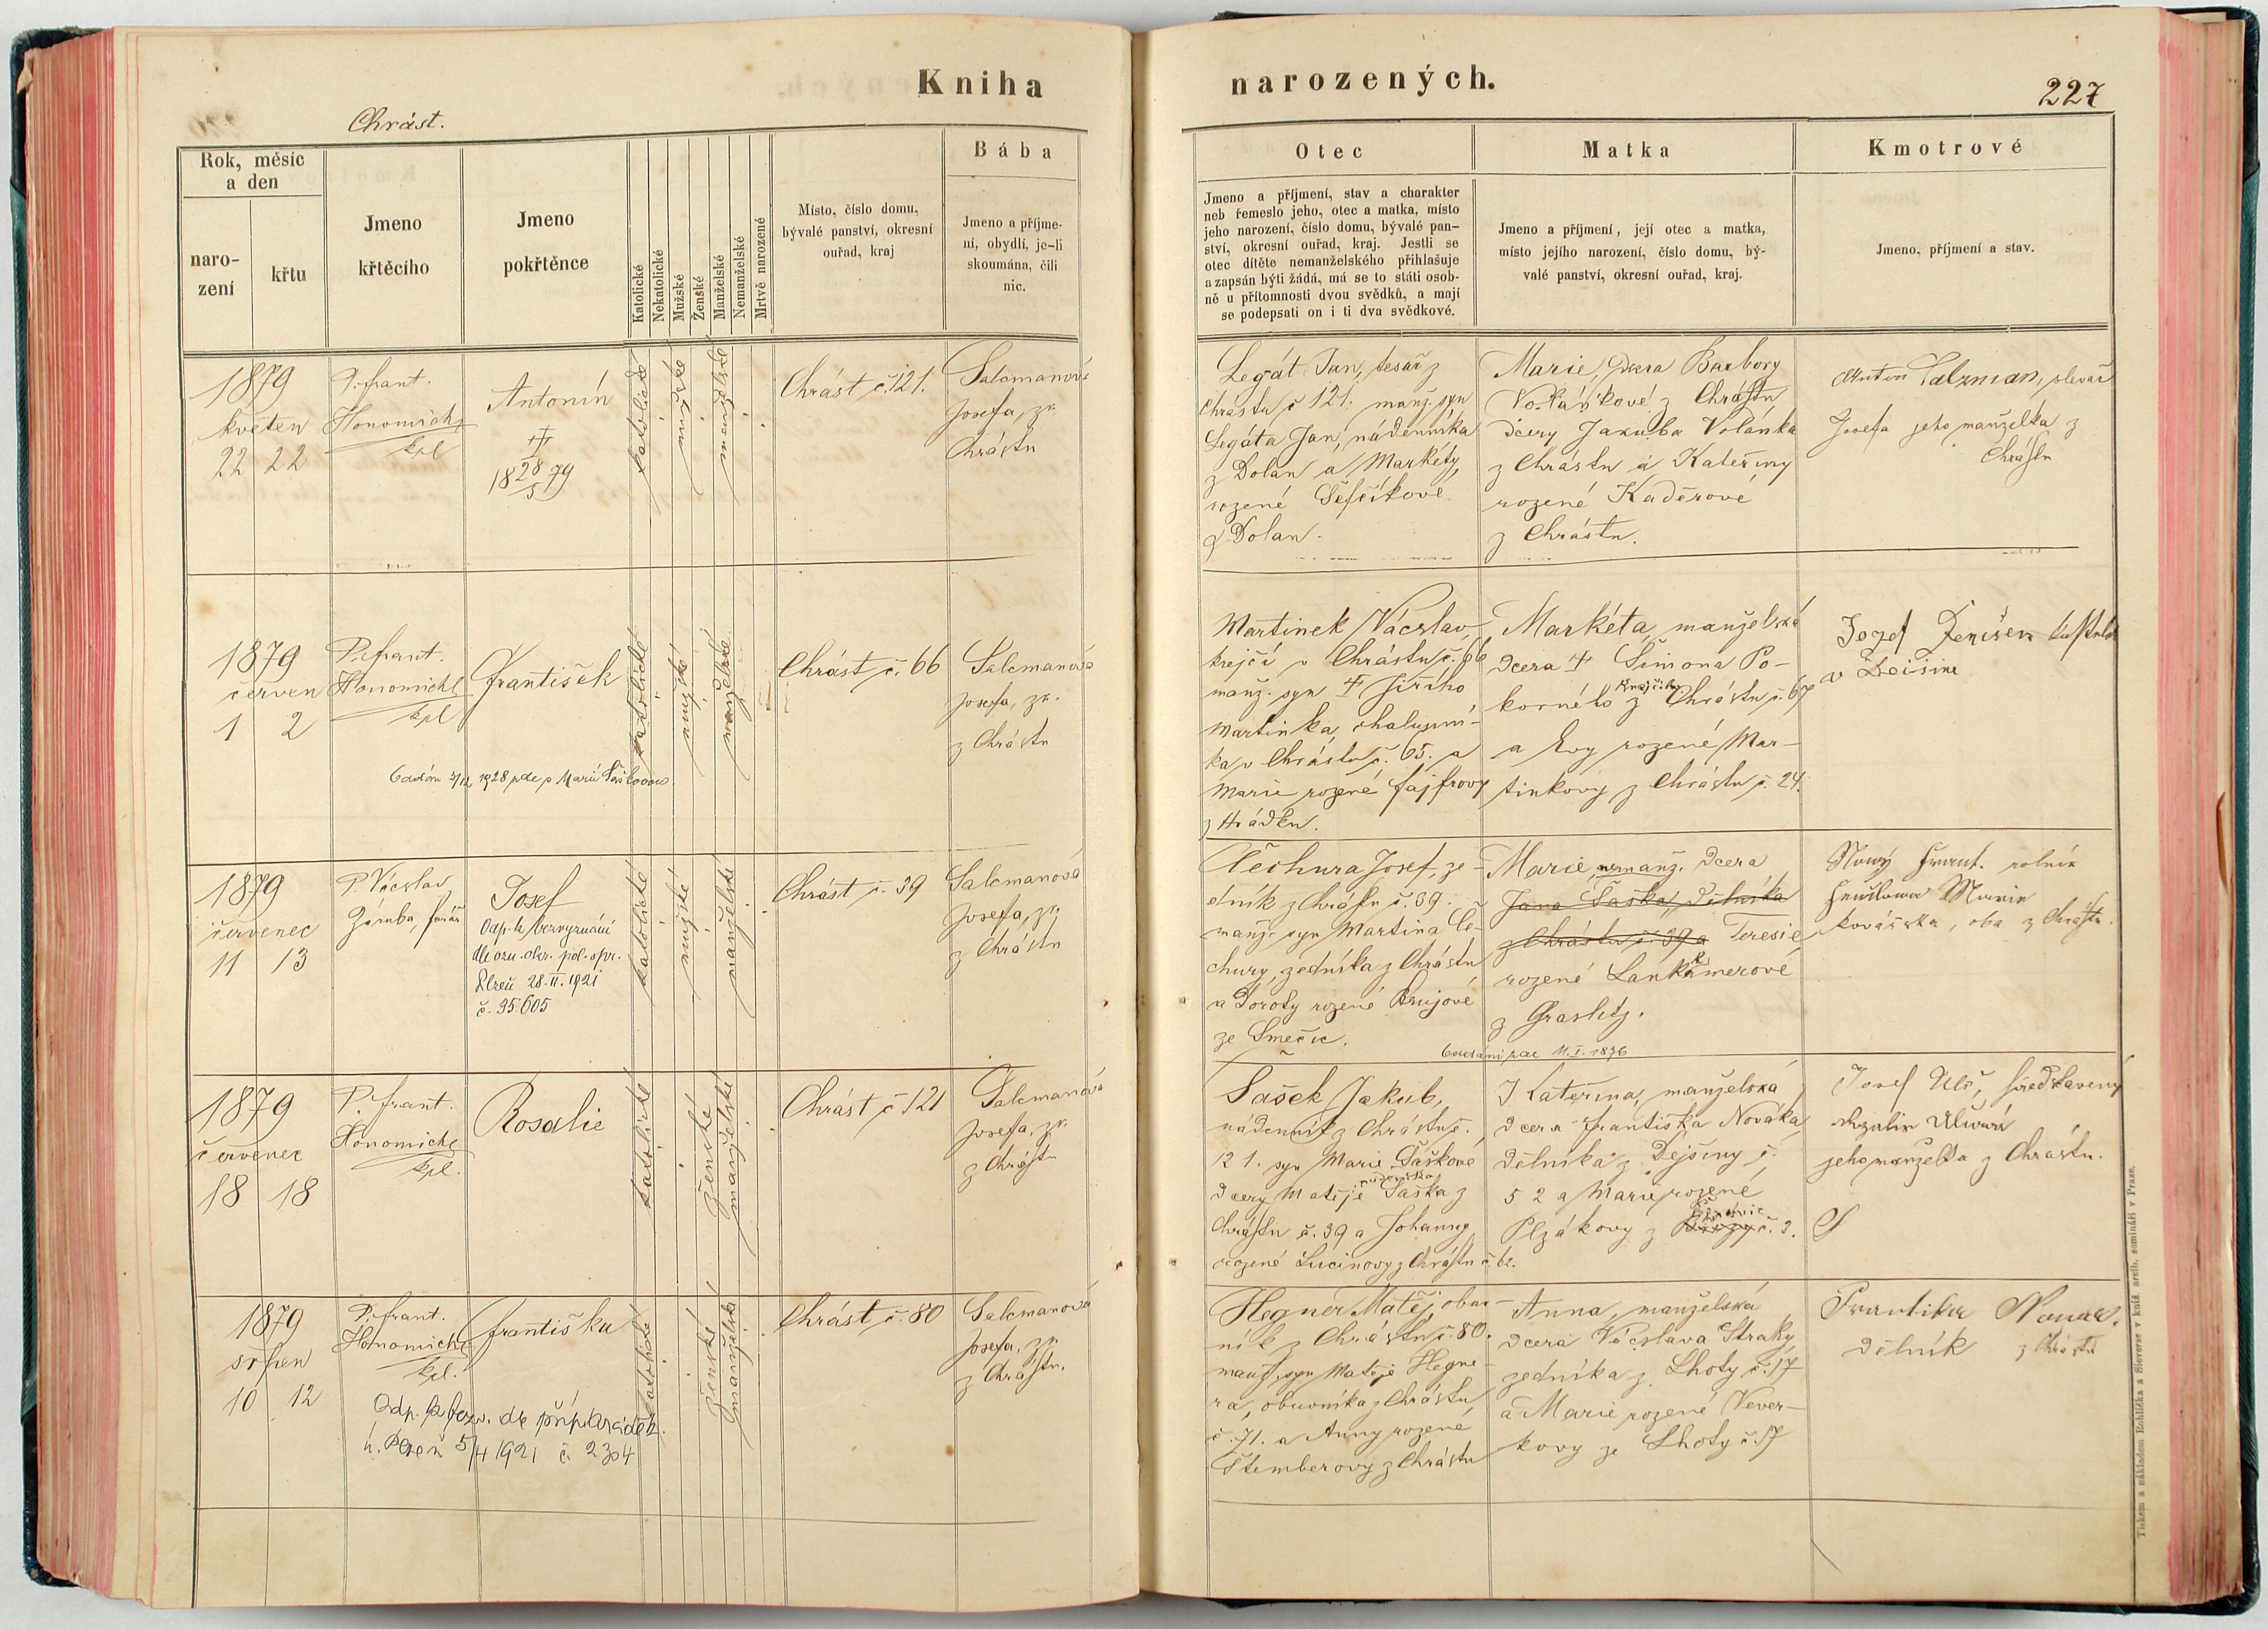 Kniha
narozených.
227
Chrást.
Rok, měsíc
a den
naro-
zení
křtu
Jmeno
křtěcího
Jmeno
pokřtěnce
Katolické
Nekatolické
Mužské
Ženské
Manželské
Nemanželské
Mrtvě narozené
Místo, číslo domu,
bývalé panství, okresní
ouřad, kraj
Bába
Jmeno a příjme-
ní, obydlí, je-li
skoumána, čili
nic.
Otec
Jmeno a příjmení, stav a charakter
neb řemeslo jeho, otec a matka, místo
jeho narození, číslo domu, bývalé pan-
ství, okresní ouřad, kraj. Jestli se
otec dítěte nemanželského přihlašuje
a zapsán býti žádá, má se to státi osob-
ně u přítomnosti dvou svědků, a mají
se podepsati on i ti dva svědkové.
Matka
Jmeno a příjmení, její otec a matka,
místo jejího narození, číslo domu, bý-
valé panství, okresní ouřad, kraj.
Kmotrové
Jmeno, příjmení a stav.
1879
květen
22 22
P. Frant.
Honomichl
kpl
Antonín
†
18 28/5 79
katolické
mužské
manželské
Chrást č. 121.
Salcmanová
Josefa, zk.
Chrástu
Legát Jan, tesař z
Chrástu č 121. manž. syn
Legáta Jan, nádenníka
z Dolan a Markéty,
rozené Šefčíkové
z Dolan.
Marie, dcera Barbory
Volánkové z Chrástu
dcery Jakuba Volánka
z Chrástu a Kateřiny
rozené Kaděrové
z Chrástu.
Anton Salzman,
Josefa jeho manželka z
Chrástu
1879
červen
1 2
P. Frant.
Honomichl
kpl
František
katolické
mužské
manželské
Chrást č. 66
Salcmanová
Josefa, zk.
z Chrástu
1928 p. Marii
Martinek Václav,
krejčí v Chrástu č. 66
manž. syn † Jiřího
Martinka, chalupní-
ka v Chrástu č. 65. a
Marie rozené Fajfrovy
z Hrádku.
Markéta, manželská
dcera † Šimona Po-
korného krejčího z Chrástu č. 67
a Evy rozené Mar-
tinkovy z Chrástu č. 24.
Josef
v
1879
červenec
11 13
P. Václav
Záruba, farář
Josef
Odp. k bezvyznání
dle ozn. okr. pol. spr.
Plzeň 28.II.1921
č. 35.605
katolické
mužské
manželské
Chrást č. 39
Salcmanová
Josefa, zk.
z Chrástu
Čechura Josef, ze-
dník z Chrástu č. 39.
manž. syn Martina Če-
chury, zedníka z Chrástu
a Doroty rozené Brujové
ze Smečic.
Marie, nemanž. dcera
Jana Taška, dělníka
z Chrástu č. 39 a Teresie
rozené Lankamerové
z Graslitz.
11.I. 1896
Nový Frant. rolník
Marie
kovářka, oba z Chrástu
1879
červenec
18 18
P. Frant.
Honomichl
kpl.
Rosalie
katolické
ženské
manželské
Chrást č 121
Salcmanová
Josefa, zk.
z Chrástu
Sašek Jakub,
nádenník z Chrástu č.
121. syn Marie Taškové
dcery Matěje Taška z
Chrástu č. 39 a Johanny
rozené Lucinovy z Chrástu č. 62.
Kateřina, manželská
dcera Františka Nováka,
dělníka z Dejšiny č.
52 a Marie rozené
Plzákovy z č. 3.
Josef Ulč, představený
Rozalie Ulčová
jeho manželka z Chrástu.
1879
srpen
10 12
P. Frant.
Honomichl
kpl.
Františka
Odp. k bezv.
Plzeň 5/4 1921 č. 2304
katolické
ženské
manželské
Chrást č. 80
Salcmanová
Josefa, zk.
z Chrástu.
Hegner Matěj, obuv-
ník z Chrástu č. 80.
manž. syn Matěje Hegne-
ra, obuvníka z Chrástu,
č. 71. a Anny rozené
Štemberovy z Chrástu
Anna, manželská
dcera Václava Straky,
zedníka z Lhoty č. 17
a Marie rozené Vever-
kovy ze Lhoty č. 17
Františka
dělník z Chrástu
Tiskem a nákladem Rohlíčka a Sieverse v kníž. arcib. semináři v Praze.